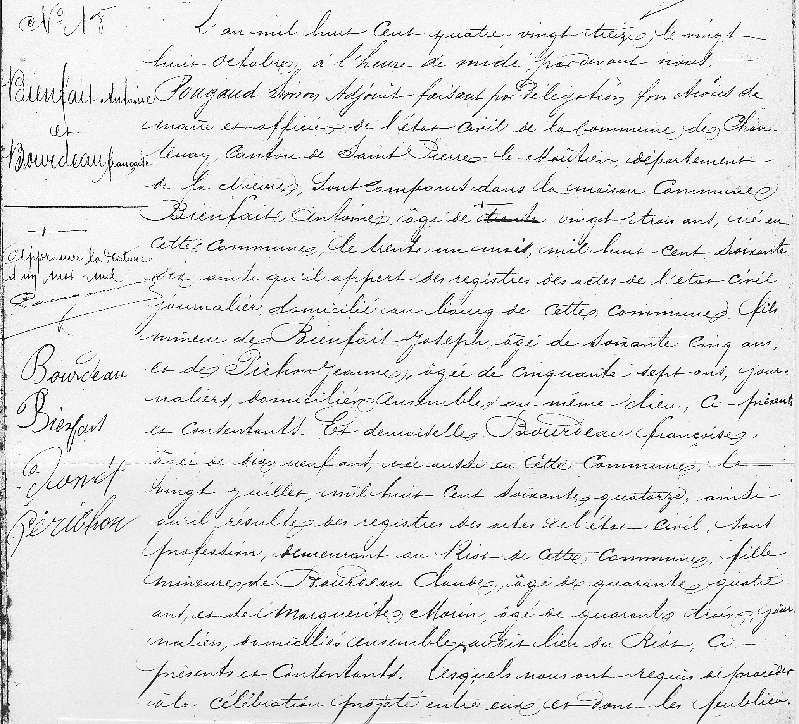 N° 18
Bienfait Antoine
et
Bourdeau françoise
Appr sur la rature
d'un mot nul
Bourdeau
Bienfait
Périchon
L'an mil huit cent quatre vingt treize, le vingt
huit octobre, à l'heure de midi, pardevant nous,
Pougaud Simon Adjoint faisant par délégation fonctions de
maire et officier de l'état civil de la commune de Chan
tenay, Canton de Saint Pierre le Moûtier, département
de la Nièvre, sont comparus dans la maison commune
Bienfait Antoine, âgé de trente vingt trois ans, né en
cette commune, le trente un mil huit cent soixante
dix ainsi qu'il appert des registres des actes de l'état civil
journalier, domicilié au bourg de cette commune, fils
mineur de Bienfait Joseph, âgé de soixante cinq ans,
et de Pichon Jeanne, âgée de cinquante sept ans, jour
naliers, domiciliés ensemble au même lieu, ci-présents
et consentants. Et demoiselle Bourdeau françoise,
âgée de dix neuf ans, née aussi en cette commune, le
vingt juillet, mil huit cent soixante quatorze, ainsi
qu'il résulte des registres des actes de l'état civil, sans
profession, demeurant au Riot de cette commune, fille
mineure de Bourdeau Claude, âgé de quarante quatre
ans, et de Marguerite Morin, âgée de quarante trois, jour
naliers, domiciliés ensemble audit lieu du Riot, ci-
présents et consentants. Lesquels nous ont requis de procéder
à la célébration projeté entre eux et dont les publica.